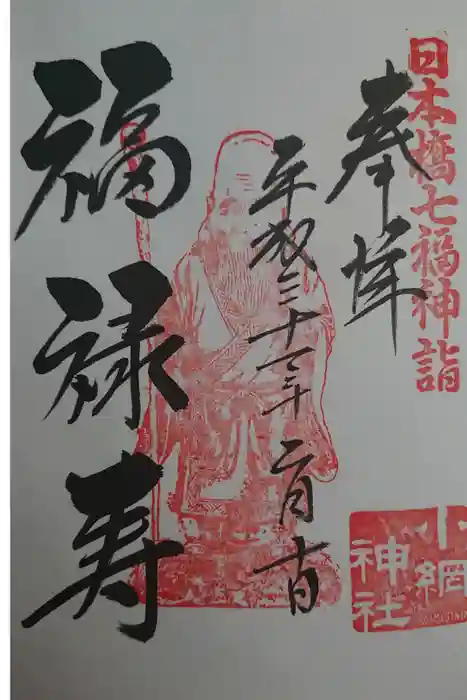 日本橋七福神詣
奉拝
平成三十一年二月十一日
福禄寿
小網
神社